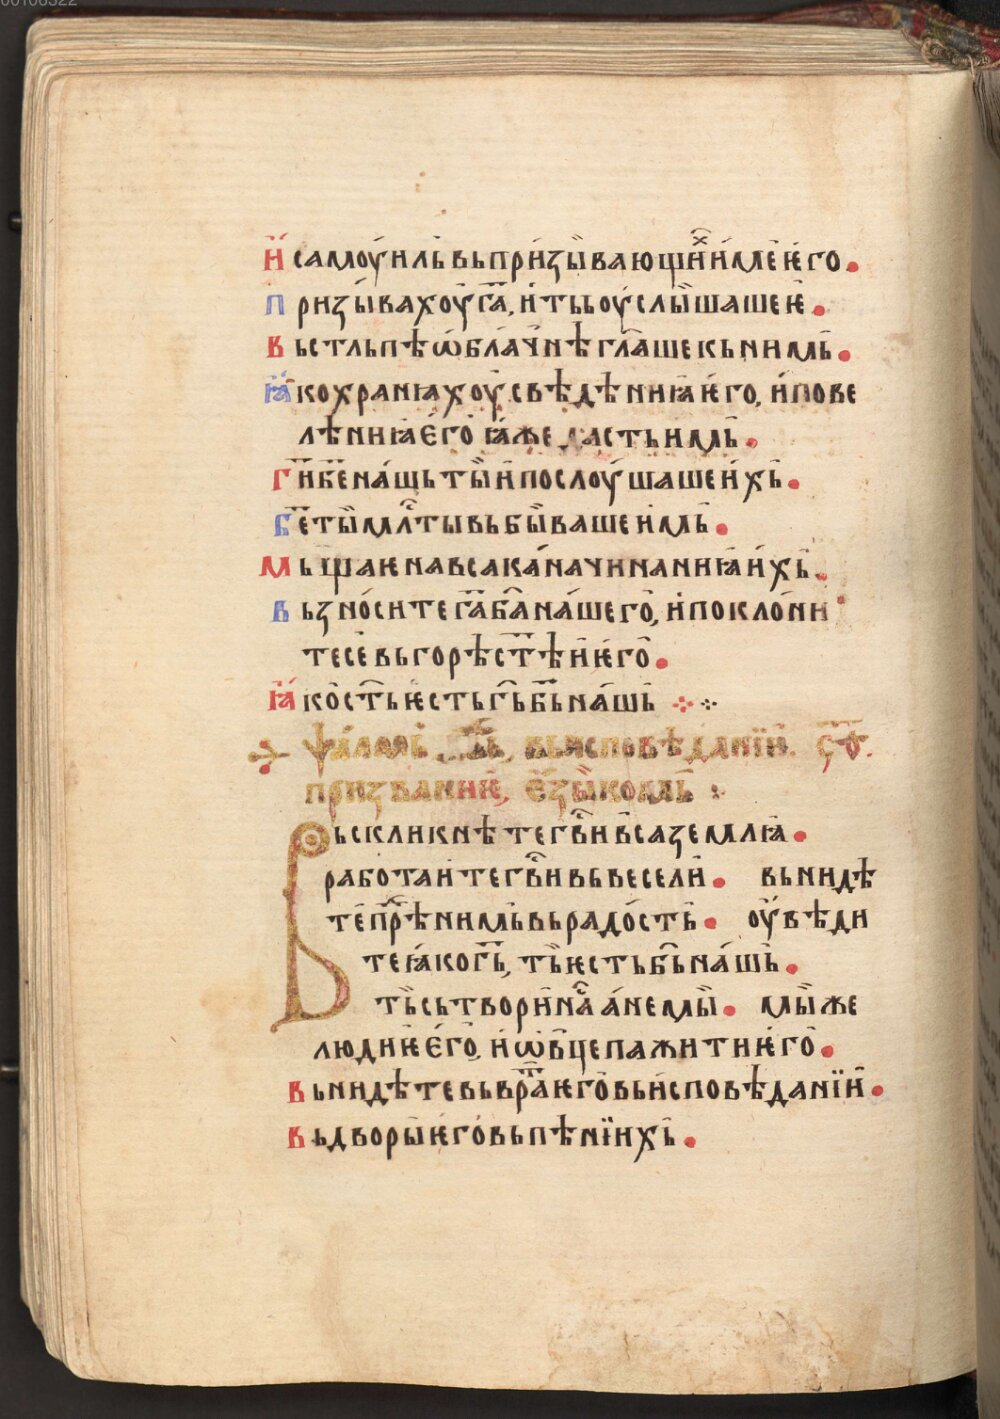 И҆ самоу́иль вь при́зы̏вающи̇ⷯ и҆ме ѥ҆го.
призы́вахоу̓ га҃, и҆ ть оу҆слы̏шаше ѥ҆.
Вь стльпѣ ѡ҆блачнѣ гл҃аше кь нимь.
ꙗ҆ко хранꙗхоу̓ свѣдѣниꙗ ѥ҆го, и҆ пове
лѣниꙗ є҆го̀ ꙗ҆же дасть имь.
Гии҃ бе҃ на́шь ты̏ и҆ послоу́шаше и҆хь.
Бе҃ ты̏ млⷭ҇тывь бы̏ваше и҆мь.
Мьщаѥ на вса ка́ начинаниꙗ и҆хь.
Вьзно́сите га҃ ба҃ на́шего̀, и҆ покло́ни
те се вь горѣ ст҃ѣи ѥ҆го̀.
ꙗ҆ко ст҃ь ѥсть гь҃ бь҃ на́шь
ѱа́ломь вь исповѣданїи. ч҃ѳ.
призваниѥ, є҆зы̏комь
Вьскликнѣте гв҃и вса землꙗ.
работаи́те гв҃и вь весели. вьнидѣ
те прⷣѣ нимь вь радость. оу̓вѣди
те ꙗ҆ко гь҃, ть ѥсть бь҃ на́шь.
ть сьтвори на́ⷭ а́ не мы̏. мы̏же
людиѥ є҆го̀, и҆ ѡ҆вце пажити ѥ҆го̀.
Вьнидѣте вь вра҃та ѥго̀ вь и҆сповѣданїи.
Вь дворы̏ ѥ҆го́ вь пѣнїихь.